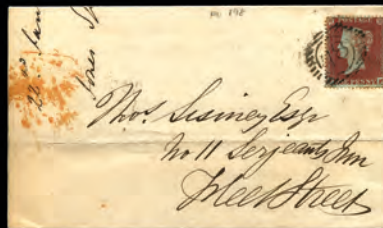 PO 198
Thos. Sismey Esqr
No 11 Serjeants Inn
Fleet Street